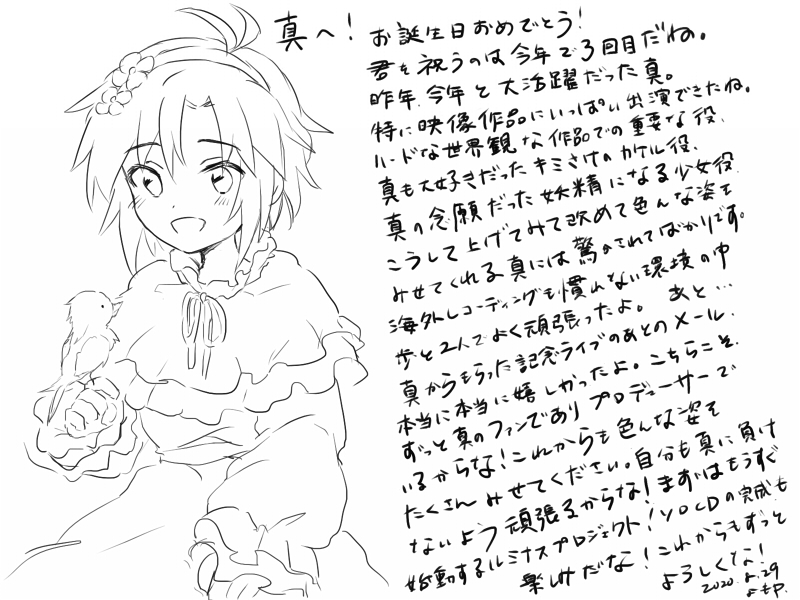 真へ！
お誕生日おめでとう！
君を祝うのは今年で3回目だね。
昨年、今年と大活躍だった真。
特に映像作品にいっぱい出演できたね。
ハードな世界観な作品での重要な役、
真も大好きだったキミさけのカケル役、
真の念願だった妖精になる少女役
こうして上げてみて改めて色んな姿を
みせてくれる真には驚かされてばかりです。
海外レコーディングも慣れない環境の中
歩と2人でよく頑張ったよ。 あと…
真からもらった記念ライブのあとのメール、
本当に本当に嬉しかったよ。こちらこそ、
ずっと真のファンでありプロデューサーで
いるからな！これからも色んな姿を
たくさんみせてください。自分も真に負け
ないよう頑張るからな！まずはもうすぐ
始動するルミナスプロジェクト！YOCDの完成も
楽しみだな！これからもずっと
よろしくな！
2020.8.29
よもP.